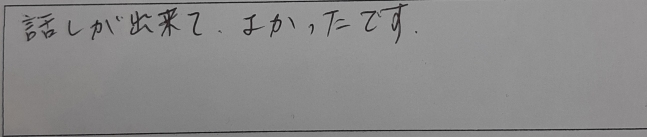 話しが出来て、よかったです.